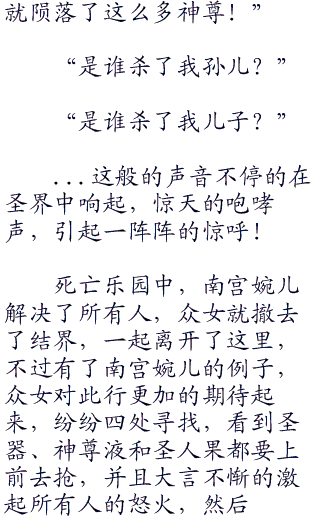 就陨落了这么多神尊！”
“是谁杀了我孙儿？”
“是谁杀了我儿子？”
...这般的声音不停的在
圣界中响起，惊天的咆哮
声，引起一阵阵的惊呼！
死亡乐园中，南宫婉儿
解决了所有人，众女就撤去
了结界，一起离开了这里，
不过有了南宫婉儿的例子，
众女对此行更加的期待起
来，纷纷四处寻找，看到圣
器、神尊液和圣人果都要上
前去抢，并且大言不惭的激
起所有人的怒火，然后